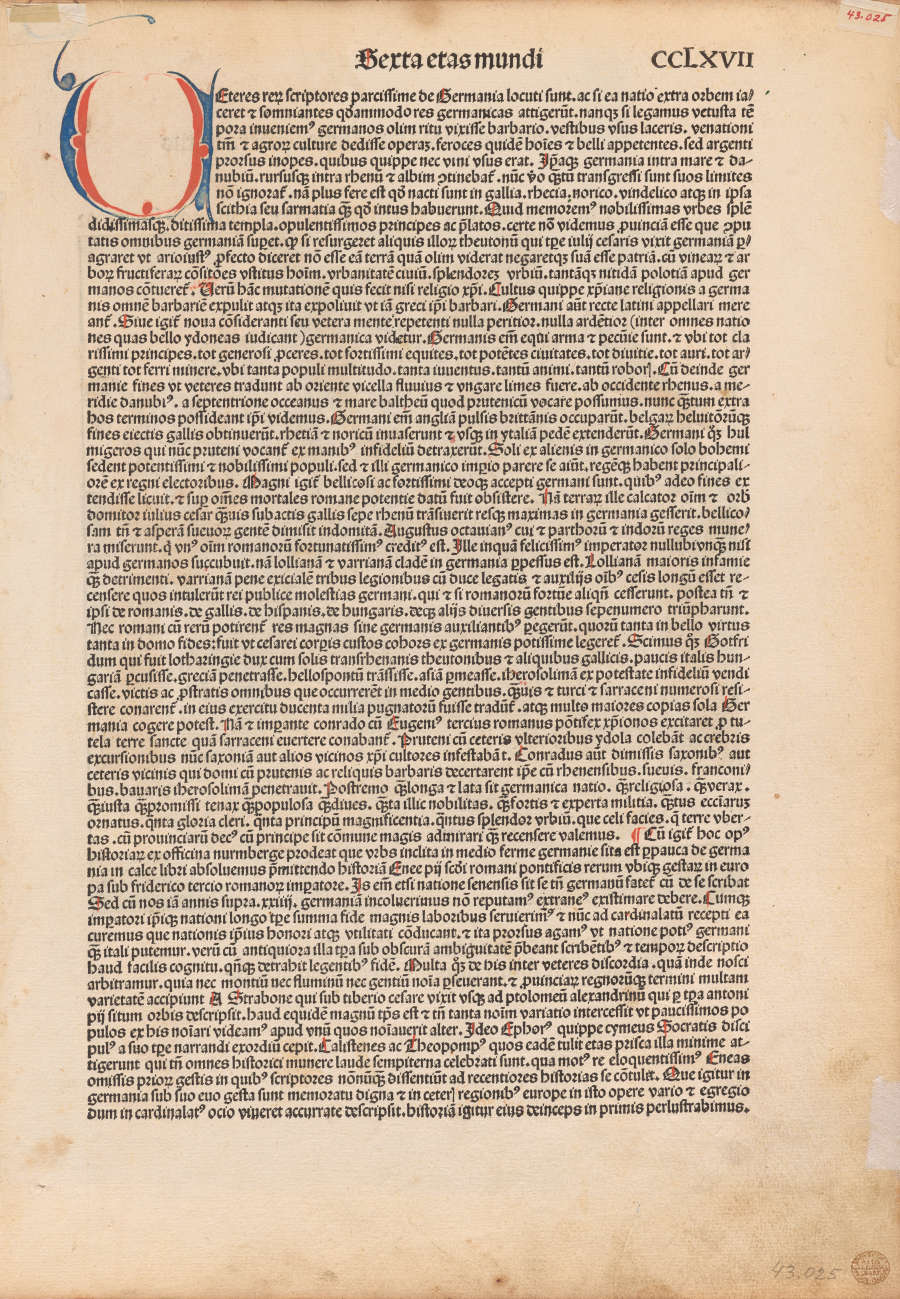 43.025
Sexta etas mundi CCLXVII
Eteres rerꝝ scriptores parcissime de Germania locuti sunt. ac si ea natio extra orbem ia⸗
ceret ⁊ somniantes qđammodo res germanicas attigerūt. nanqꝫ si legamus vetusta tē
pora inueniemꝰ germanos olim ritu vixisse barbario. vestibus vsus laceris. venationi
tm̄ ⁊ agrorꝝ culture dedisse operaꝫ. feroces quidē hoīes ⁊ belli appetentes. sed argenti
prorsus inopes. quibus quippe nec vini vsus erat. Ip̄aqꝫ germania intra mare ⁊ da⸗
nubiū. rursusqꝫ intra rhenū ⁊ albim ꝯtinebat̄. nūc ṽo qꝫtū transgressi sunt suos limites
nō ignorat̄. nā plus fere est qđ nacti sunt in gallia. rhecia. norico. vindelico atqꝫ in ipsa
scithia seu sarmatia qꝫ qđ intus habuerunt. Quid memoremꝰ nobilissimas vrbes splē
didissimasqꝫ. ditissima templa. opulentissimos principes ac p̄latos. certe nō videmus ꝓuinciā esse que ꝯpu
tatis omnibus germaniā suꝑet. qꝙ si resurgeret aliquis illorꝝ theutonū qui tp̄e iulij cesaris vixit germaniā ꝑ⸗
agraret vt arioiustꝰ ꝓfecto diceret nō esse eā terrā quā olim viderat negaretqꝫ suā esse patriā. cū vinearꝝ ⁊ ar
borꝝ fructiferarꝝ cōsitiōes vstitus hoīm. vrbanitatē ciuiū. splendorez vrbiū. tantāqꝫ nitidā polotiā apud ger
manos cōtueret̄. Verū hāc mutationē quis fecit nisi religio xp̄i. Cultus quippe xp̄iane religionis a germa
nis omnē barbariē expulit atqꝫ ita expoliuit vt iā greci ip̄i barbari. Germani aūt recte latini appellari mere
ant̄. Siue igit̄ noua cōsideranti seu vetera mente repetenti nulla peritior. nulla ardētior (inter omnes natio
nes quas bello ydoneas iudicant) germanica videtur. Germanis em̄ equi arma ⁊ pecūie sunt. ⁊ vbi tot cla
rissimi principes. tot generosi ꝓceres. tot fortissimi equites. tot potētes ciuitates. tot diuitie. tot auri. tot ar⸗
genti tot ferri minere. vbi tanta populi multitudo. tanta iuuentus. tantū animi. tantū roborꝭ. Cū deinde ger
manie fines vt veteres tradunt ab oriente vicella fluuius ⁊ vngare limes fuere. ab occidente rhenus. a me⸗
ridie danubiꝰ. a septentrione occeanus ⁊ mare baltheū quod prutenicū vocare possumus. nunc qꝫtum extra
hos terminos possideant ip̄i videmus. Germani em̄ angliā pulsis brittānis occuparūt. belgarꝝ heluitōrūqꝫ
fines eiectis gallis obtinuerūt. rhetiā ⁊ noricū inuaserunt ⁊ vsqꝫ in ytaliā pedē extenderūt. Germani qꝫ hul
migeros qui nūc pruteni vocant̄ ex manibꝰ infidelium detraxerūt. Soli ex alienis in germanico solo bohemi
sedent potentissimi ⁊ nobilissimi populi. sed ⁊ illi germanico imꝑio parere se aiūt. regēqꝫ habent principali⸗
orē ex regni electoribus. Magni igit̄ bellicosi ac fortissimi deoqꝫ accepti germani sunt. quibꝰ adeo fines ex
tendisse licuit. ⁊ suꝑ oīmes mortales romane potentie datū fuit obsistere. Nā terrarꝝ ille calcator oīm ⁊ orb
domitor iulius cesar qꝫuis subactis gallis sepe rhenū trāsiuerit resqꝫ maximas in germania gesserit. bellico⸗
sam tn̄ ⁊ asperā sueuorꝝ gentē dimisit indomitā. Augustus octauianꝰ cui ⁊ parthorū ⁊ indorū reges mune⸗
ra miserunt. q̄ vnꝰ oīm romanorū fortunatissimꝰ creditꝰ est. Ille inquā felicissimꝰ imperator nullubivnqꝫ nisi
apud germanos succubuit. nā lollianā ⁊ varrianā cladē in germania ꝑpessus est. Lollianā maioris infamie
qꝫ detrimenti. varrianā pene exicialē tribus legionibus cū duce legatis ⁊ auxilijs oībꝰ cesis longū esset re⸗
censere quos intulerūt rei publice molestias germani. qui ⁊ si romanorū fortūe aliqn̄ cesserunt. postea tn̄ ⁊
ipsi de romanis. de gallis. de hispanis. de hungaris. deqꝫ alijs diuersis gentibus sepenumero triūpharunt.
Nec romani cū rerū potirent̄ res magnas sine germanis auxiliantibꝰ ꝑegerūt. quorū tanta in bello virtus
tanta in domo fides: fuit vt cesarei corꝑis custos cohors ex germanis potissime legeret̄. Scimus qꝫ Gotfri
dum qui fuit lotharingie dux cum solis transrhenanis theutonibus ⁊ aliquibus gallicis. paucis italis hun⸗
gariā ꝑcusisse. greciā penetrasse. hellospontū trāssisse. asiā ꝑmeasse. iherosolimā ex potestate infideliū vendi
casse. victis ac ꝓstratis omnibus que occurrerēt in medio gentibus. qꝫuis ⁊ turci ⁊ sarraceni numerosi resi⸗
stere conarent̄. in eius exercitu ducenta milia pugnatorū fuisse tradūt. atqꝫ multo maiores copias sola Ger
mania cogere potest. Nā ⁊ imꝑante conrado cū Eugeniꝰ tercius romanus pōtifex xp̄ionos excitaret ꝓ tu⸗
tela terre sancte quā sarraceni euertere conabant̄. Pruteni cū ceteris vlterioribus ydola colebāt ac crebris
excursionibus nūc saxoniā aut alios vicinos xp̄i cultores infestabāt. Conradus aūt dimissis saxonibꝰ aut
ceteris vicinis qui domi cū prutenis ac reliquis barbaris decertarent ip̄e cū rhenensibus. sueuis. franconi⸗
bus. bauaris iherosolimā penetrauit. Postremo qꝫlonga ⁊ lata sit germanica natio. qꝫreligiosa. qꝫverax.
qꝫiusta qꝫpromissi tenax qꝫpopulosa qꝫdiues. qꝫta illic nobilitas. qꝫfortis ⁊ experta militia. qꝫtus ecc̄iaruꝫ
ornatus. qn̄ta gloria cleri. qn̄ta principū magnificentia. qn̄tus splendor vrbiū. que celi facies. q̄ terre vber⸗
tas. cū prouinciarū decꝰ cū principe sit cōmune magis admirari qꝫ recensere valemus. ¶ Cū igit̄ hoc opꝰ
historiarꝝ ex officina nurmberge prodeat que vrbs inclita in medio ferme germanie sita est ꝑpauca de germa
nia in calce libri absoluemus p̄mittendo historiā Enee pij scd̄i romani pontificis rerum vbiqꝫ gestarꝝ in euro
pa sub friderico tercio romanorꝝ imꝑatore. Is em̄ etsi natione senensis sit se tn̄ germanū fatet̄ cū de se scribat
Sed cū nos iā annis supra. xxiiij. germaniā incoluerimus nō reputamꝰ extraneꝰ existimare debere. Cumqꝫ
imꝑatori ip̄iqꝫ nationi longo tp̄e summa fide magnis laboribus seruierimꝰ ⁊ nūc ad cardinalatū recepti ea
curemus que nationis ip̄ius honori atqꝫ vtilitati cōducant. ⁊ ita prorsus agamꝰ vt natione potiꝰ germani
qꝫ itali putemur. verū cū antiquiora illa tp̄a sub obscurā ambiguitatē p̄beant scribētibꝰ ⁊ temporꝝ descriptio
haud facilis cognitu. qn̄qꝫ detrahit legentibꝰ fidē. Multa qꝫ de his inter veteres discordia. quā inde nosci
arbitramur. quia nec montiū nec fluminū nec gentiū noīa ꝑseuerant. ⁊ ꝓuinciarꝝ regnorūqꝫ termini multani
varietatē accipiunt A Strabone qui sub tiberio cesare vixit vsqꝫ ad ptolomeū alexandrinū qui ꝑ tp̄a antoni
pij situm orbis descripsit. haud equidē magnū tp̄s est ⁊ tn̄ tanta noīm variatio intercessit vt paucissimos po
pulos ex his noīari videamꝰ apud vnū quos noīauerit alter. Ideo Ephorꝰ quippe cymeus Socratis disci
pulꝰ a suo tp̄e narrandi exordiū cepit. Calistenes ac Theopompꝰ quos eadē tulit etas prisca illa minime at⸗
tigerunt qui tn̄ omnes historici munere laude sempiterna celebrati sunt. qua motꝰ re eloquentissimꝰ Eneas
omissis priorꝝ gestis in quibꝰ scriptores nonūqꝫ dissentiūt ad recentiores historias se cōtulit. Que igitur in
germania sub suo euo gesta sunt memoratu digna ⁊ in ceterꝭ regionibꝰ europe in isto opere vario ⁊ egregio
dum in cardinalatꝰ ocio viueret accurrate descripsit. historiā igitur eius deinceps in primis perlustrabimus.
43.025